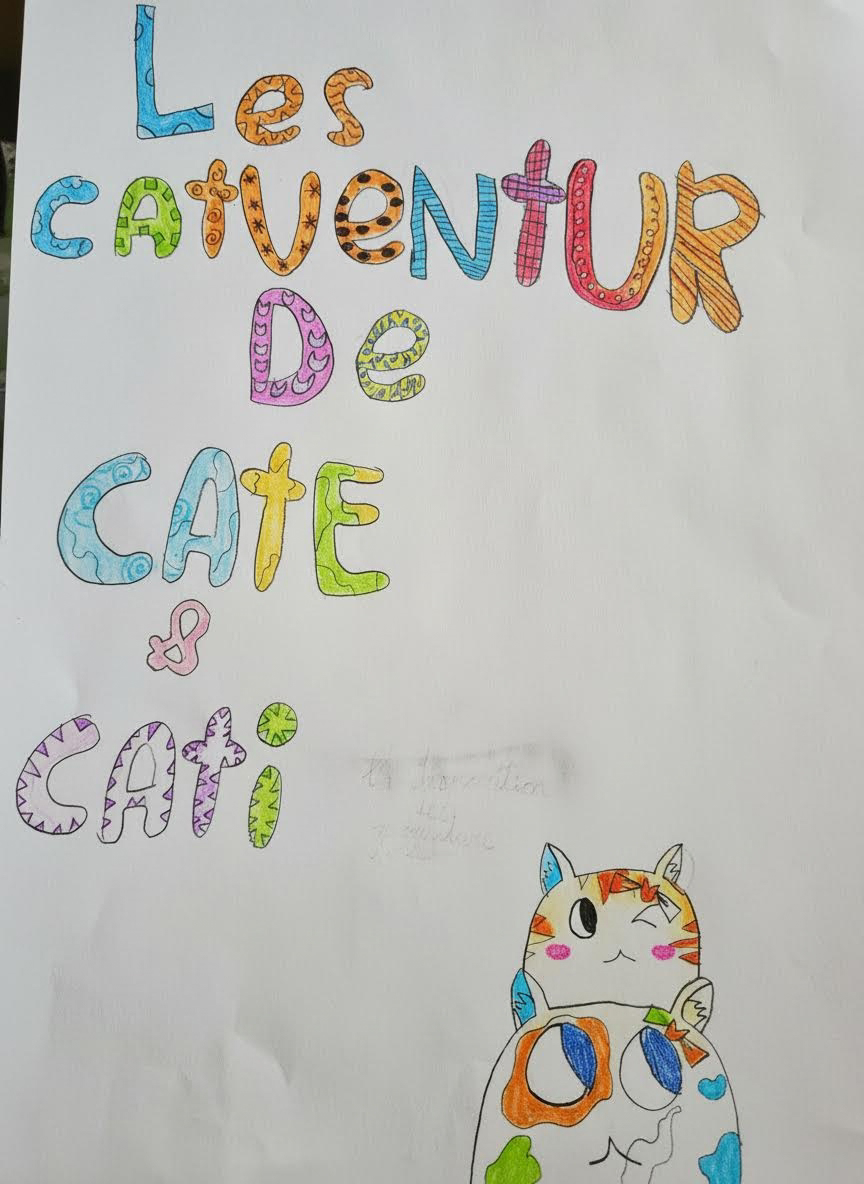 Les
CAtVeNtUR
De
CAtE
&
CAti